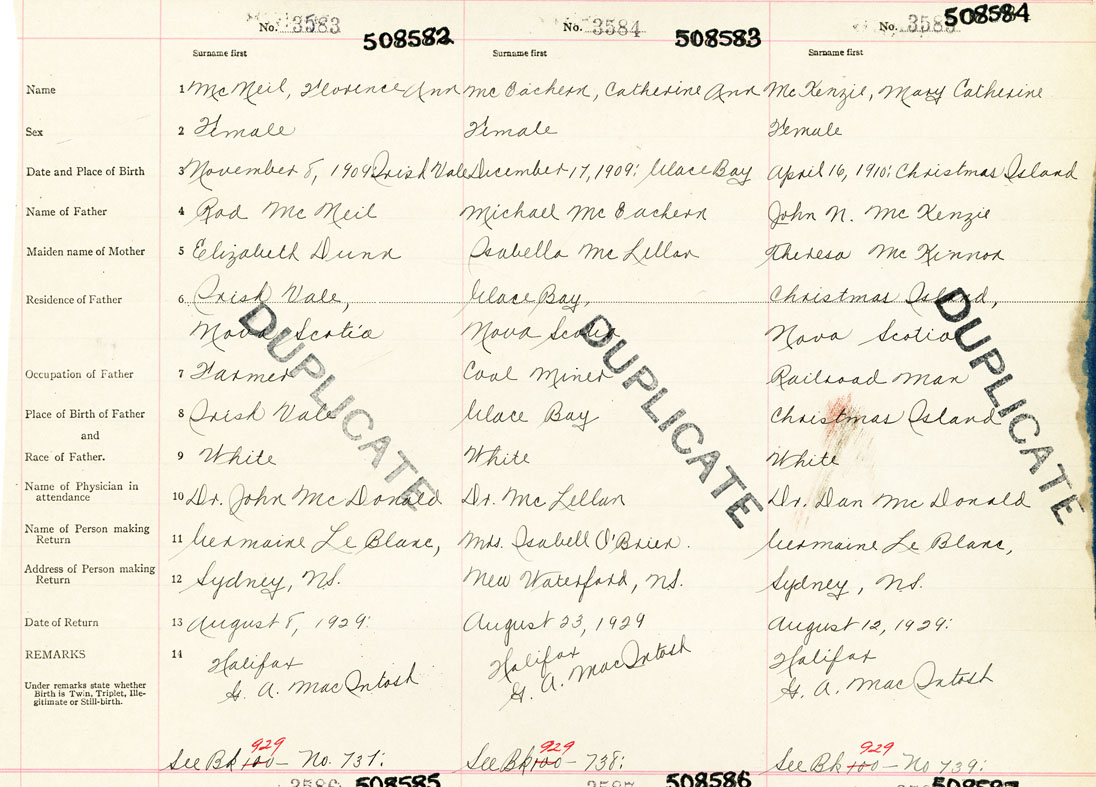 No. 3583 508582 No. 3584 508583 No. 3585 508584
Surname first Surname first Surname first
Name 1 McNeil, Florence Ann McEachern, Catherine Ann McKenzie, Mary Catherine
Sex 2 Female Female Female
Date and Place of Birth 3 November 8, 1909: Irish Vale December 17, 1909: Glace Bay April 16, 1910: Christmas Island
Name of Father 4 Rod McNeil Michael McEachern John N. McKenzie
Maiden name of Mother 5 Elizabeth Dunn Isabella McLellan Theresa McKinnon
Residence of Father 6 Irish Vale, Glace Bay, Christmas Island,
Nova Scotia Nova Scotia Nova Scotia
DUPLICATE DUPLICATE DUPLICATE
Occupation of Father 7 Farmer Coal Miner Railroad Man
Place of Birth of Father 8 Irish Vale Glace Bay Christmas Island
and
Race of Father. 9 White White White
Name of Physician in
attendance 10 Dr. John McDonald Dr. McLellan Dr. Dan McDonald
Name of Person making
Return 11 Germaine Le Blanc, Mrs. Isabell O'Brien. Germaine Le Blanc,
Address of Person making
Return 12 Sydney, NS. New Waterford, NS. Sydney, NS.
Date of Return 13 August 8, 1929: August 23, 1929 August 12, 1929:
REMARKS 14 Halifax Halifax Halifax
G. A. MacIntosh G. A. MacIntosh G. A. MacIntosh
Under remarks state whether
Birth is Twin, Triplet, Ille-
gitimate or Still-birth.
929 929 929
See Bk 100 — No. 737: See Bk 100 — 738: See Bk 100 — No 739:
3586 508585 3587 508586 508587